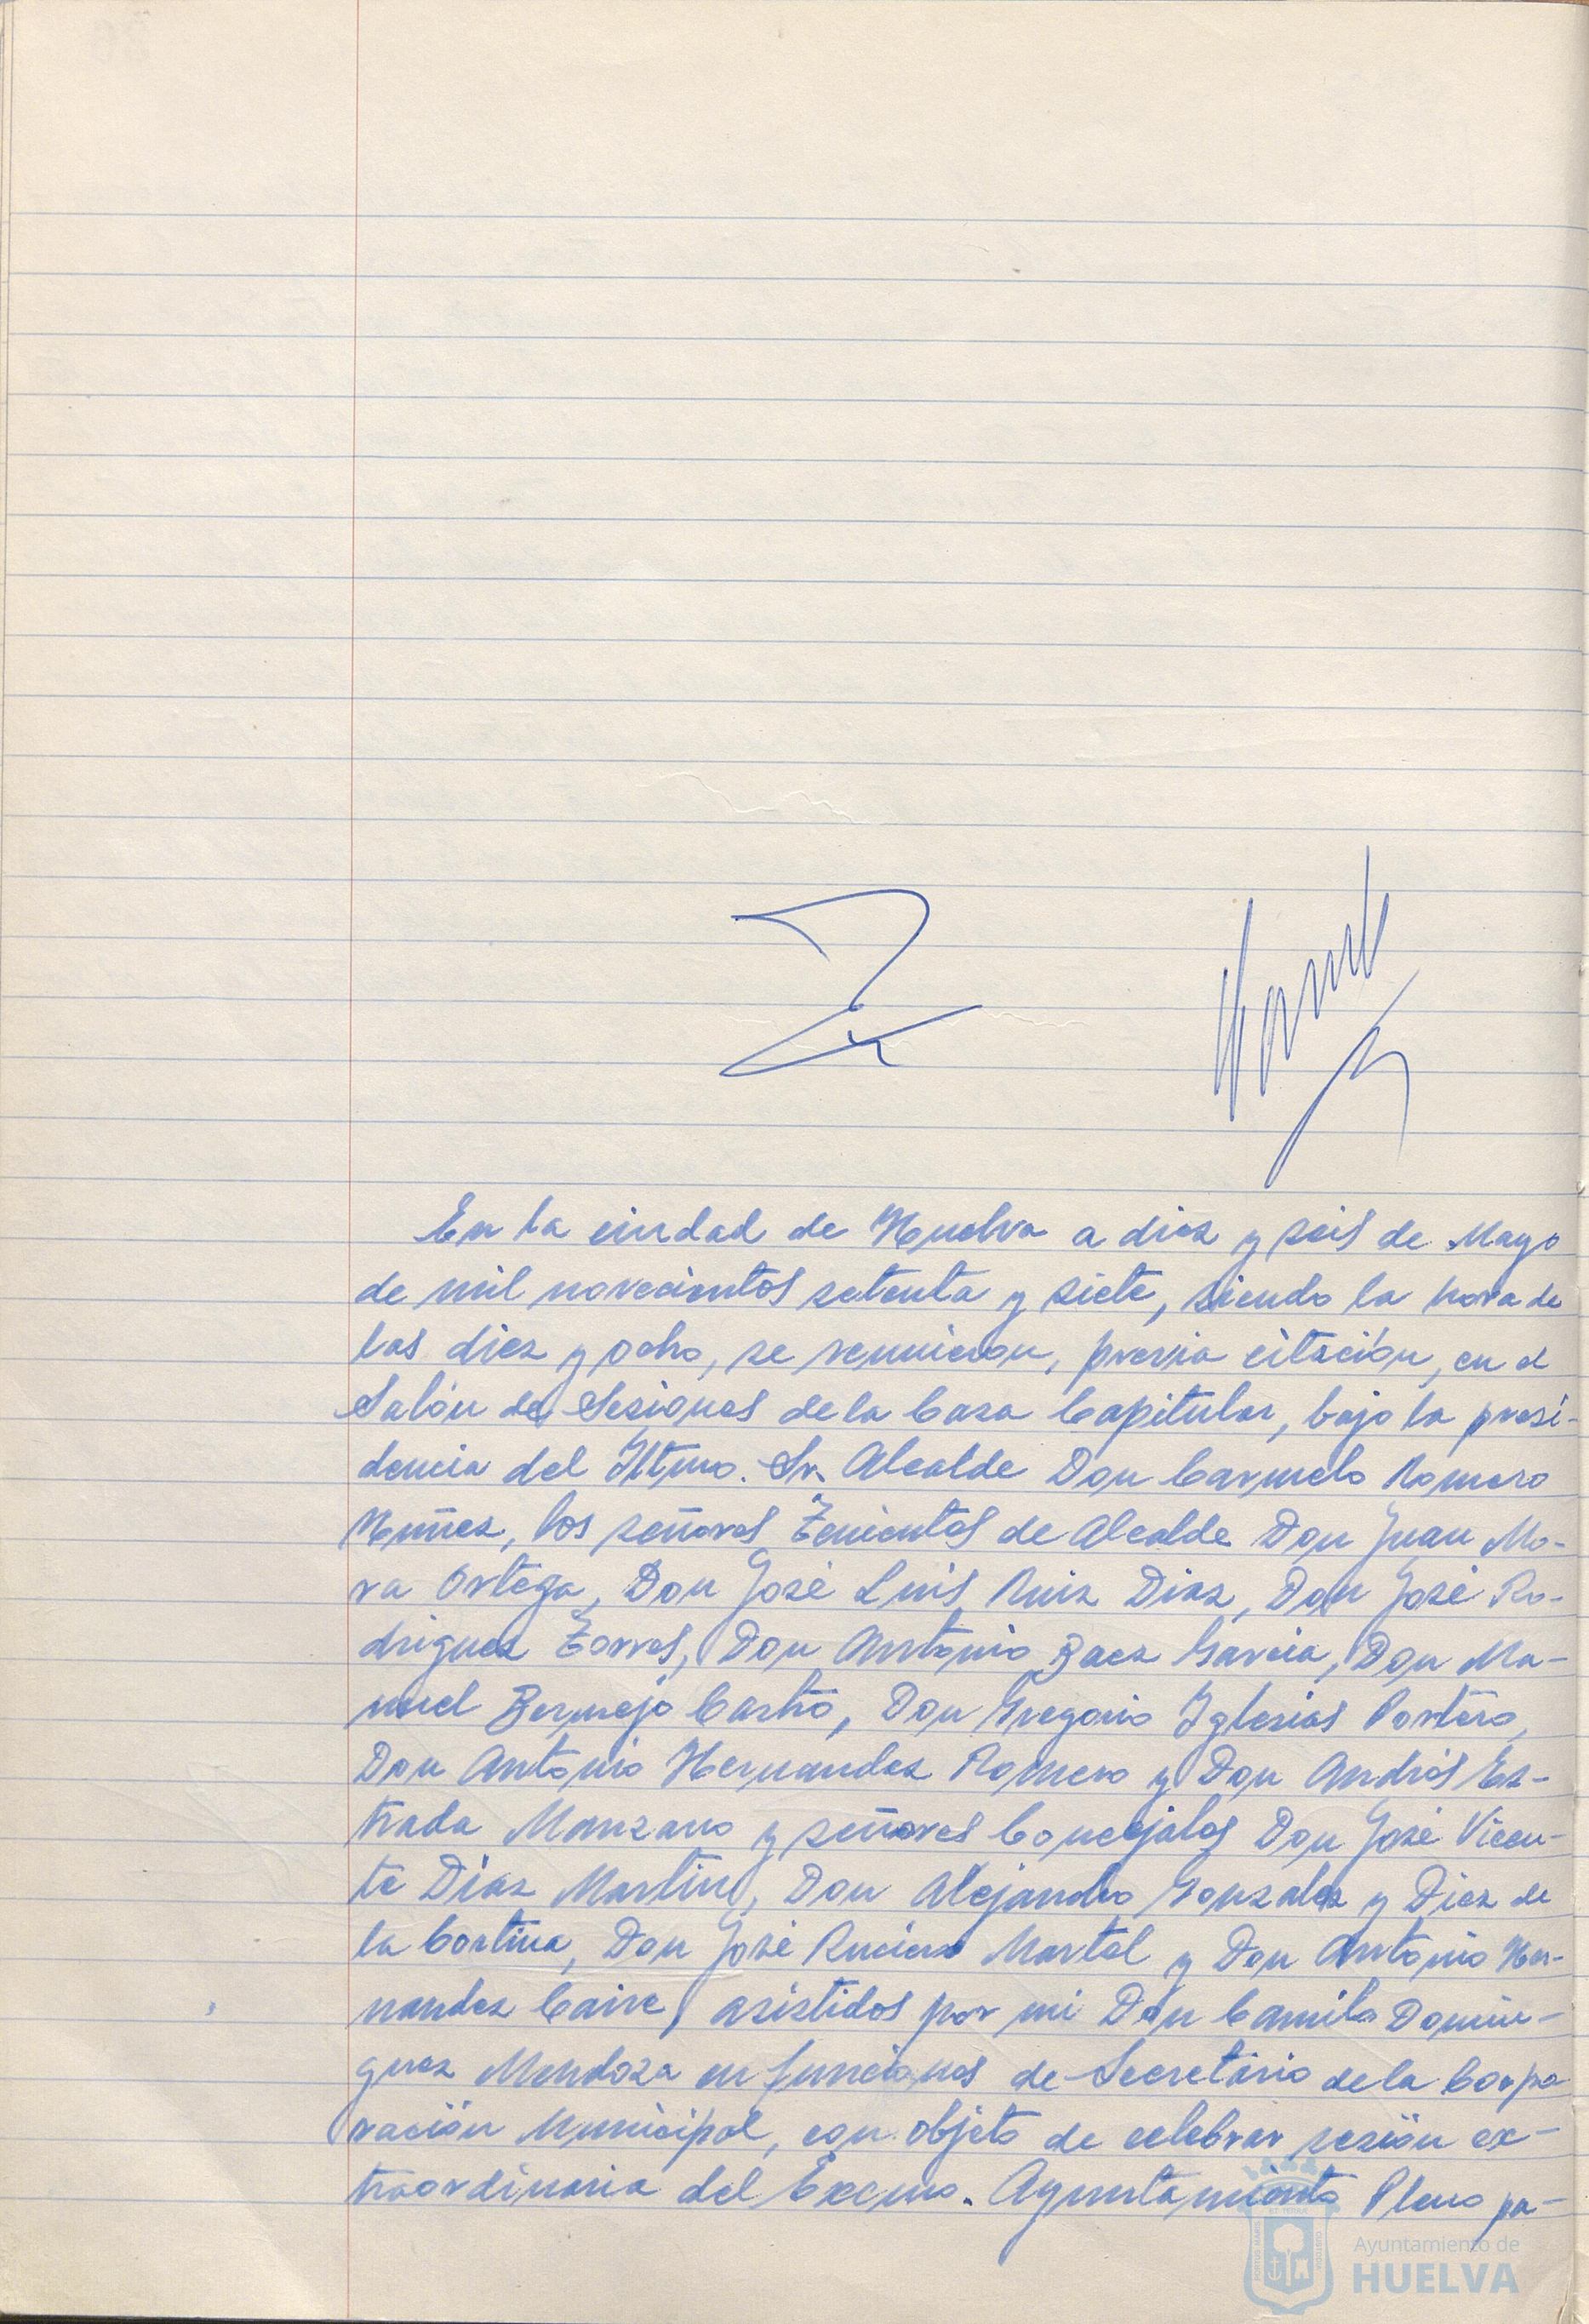 En la ciudad de Huelva a diez y seis de Mayo
de mil novecientos setenta y siete, siendo la hora de
las diez y ocho, se reunieron, previa citación, en el
Salón de Sesiones de la Casa Capitular, bajo la presi-
dencia del Iltmo. Sr. Alcalde Don Carmelo Romero
Nuñez, los señores Tenientes de Alcalde Don Juan Mo-
ra Ortega, Don José Luis Ruiz Diaz, Don José Ro-
driguez Torres, Don Antonio Baez Garcia, Don Ma-
nuel Bermejo Castro, Don Gregorio Iglesias Portero,
Don Antonio Hernandez Romero y Don Andrés Es-
trada Manzano y señores Concejales Don José Vicen-
te Diaz Martin, Don Alejandro Gonzalez y Diez de
la Cortina, Don José Martel y Don Antonio Her-
nandez Caire, asistidos por mi Don Camilo Domin-
guez Mendoza en funciones de Secretario de la Corpo
ración Municipal, con objeto de celebrar sesión ex-
traordinaria del Excmo. Ayuntamiento Pleno pa-
Ayuntamiento de
HUELVA